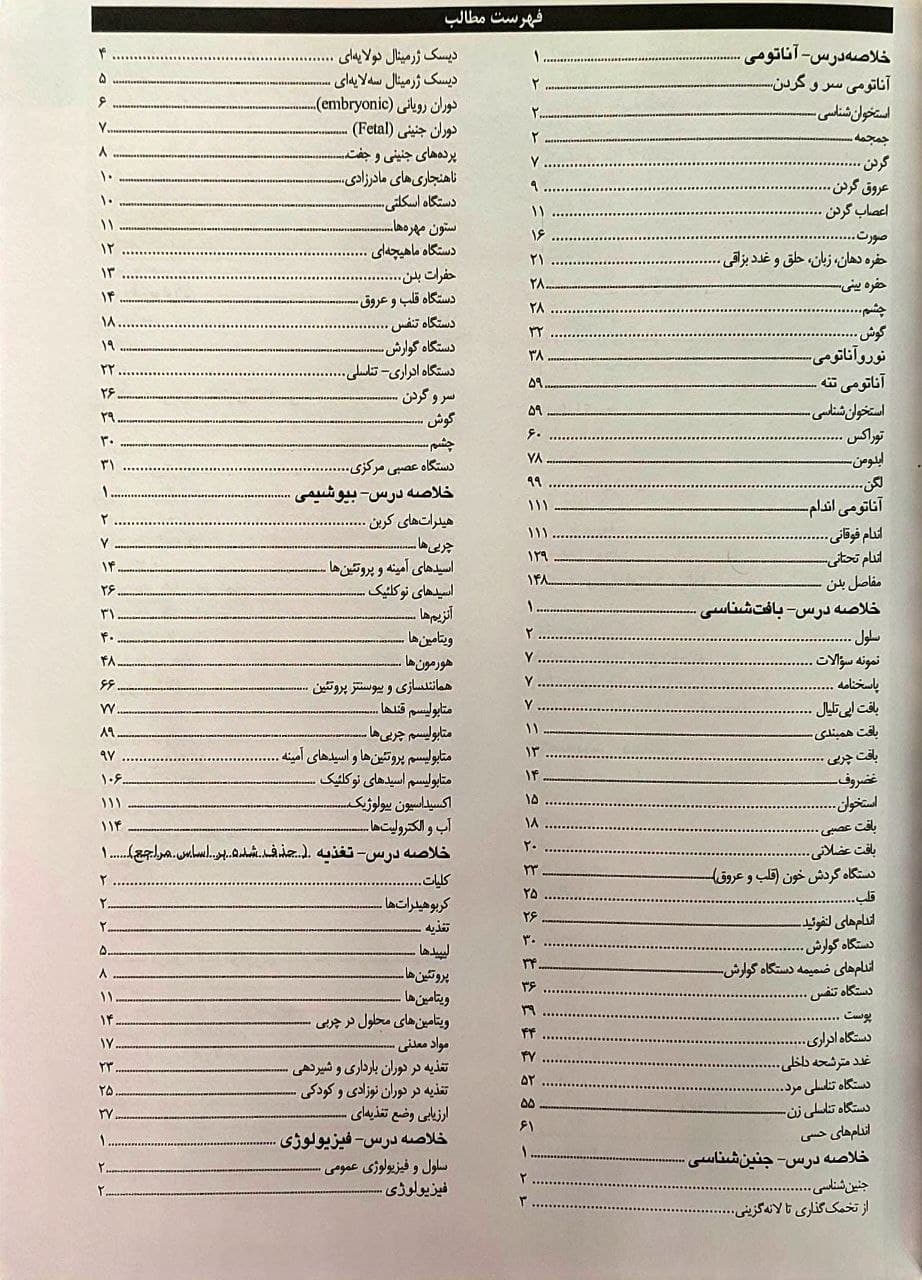 فهرست مطالب
خلاصه‌درس- آناتومی ........ ۱
آناتومی سر و گردن ........ ۲
استخوان‌شناسی ........ ۲
جمجمه ........ ۲
گردن ........ ۷
عروق گردن ........ ۹
اعصاب گردن ........ ۱۱
صورت ........ ۱۶
حفره دهان، زبان، حلق و غدد بزاقی ........ ۲۱
حفره بینی ........ ۲۸
چشم ........ ۲۸
گوش ........ ۳۲
نوروآناتومی ........ ۳۸
آناتومی تنه ........ ۵۹
استخوان‌شناسی ........ ۵۹
توراکس ........ ۶۰
ابدومن ........ ۷۸
لگن ........ ۹۹
آناتومی اندام ........ ۱۱۱
اندام فوقانی ........ ۱۱۱
اندام تحتانی ........ ۱۲۹
مفاصل بدن ........ ۱۴۸
خلاصه درس- بافت‌شناسی ........ ۱
سلول ........ ۲
نمونه سؤالات ........ ۷
پاسخنامه ........ ۷
بافت اپی‌تلیال ........ ۷
بافت همبندی ........ ۱۱
بافت چربی ........ ۱۳
غضروف ........ ۱۴
استخوان ........ ۱۵
بافت عصبی ........ ۱۸
بافت عضلانی ........ ۲۰
دستگاه گردش خون (قلب و عروق) ........ ۲۳
قلب ........ ۲۵
اندام‌های لنفوئید ........ ۲۶
دستگاه گوارش ........ ۳۰
اندام‌های ضمیمه دستگاه گوارش ........ ۳۴
دستگاه تنفس ........ ۳۶
پوست ........ ۳۹
دستگاه ادراری ........ ۴۴
غدد مترشحه داخلی ........ ۴۷
دستگاه تناسلی مرد ........ ۵۲
دستگاه تناسلی زن ........ ۵۵
اندام‌های حسی ۶۱
خلاصه درس- جنین‌شناسی ........ ۱
جنین‌شناسی ........ ۲
از تخمک‌گذاری تا لانه‌گزینی ........ ۳
دیسک ژرمینال دولایه‌ای ........ ۴
دیسک ژرمینال سه‌لایه‌ای ........ ۵
دوران رویانی (embryonic) ........ ۶
دوران جنینی (Fetal) ........ ۷
پرده‌های جنینی و جفت ........ ۸
ناهنجاری‌های مادرزادی ........ ۱۰
دستگاه اسکلتی ........ ۱۰
ستون مهره‌ها ........ ۱۱
دستگاه ماهیچه‌ای ........ ۱۲
حفرات بدن ........ ۱۳
دستگاه قلب و عروق ........ ۱۴
دستگاه تنفس ........ ۱۸
دستگاه گوارش ........ ۱۹
دستگاه ادراری- تناسلی ........ ۲۲
سر و گردن ........ ۲۶
گوش ........ ۲۹
چشم ........ ۳۰
دستگاه عصبی مرکزی ........ ۳۱
خلاصه درس- بیوشیمی ........ ۱
هیدرات‌های کربن ........ ۲
چربی‌ها ........ ۷
اسیدهای آمینه و پروتئین‌ها ........ ۱۴
اسیدهای نوکلئیک ........ ۲۶
آنزیم‌ها ........ ۳۱
ویتامین‌ها ........ ۴۰
هورمون‌ها ........ ۴۸
همانندسازی و بیوسنتز پروتئین ........ ۶۶
متابولیسم قندها ........ ۷۷
متابولیسم چربی‌ها ........ ۸۹
متابولیسم پروتئین‌ها و اسیدهای آمینه ........ ۹۷
متابولیسم اسیدهای نوکلئیک ........ ۱۰۶
اکسیداسیون بیولوژیک ........ ۱۱۱
آب و الکترولیت‌ها ........ ۱۱۴
خلاصه درس- تغذیه (حذف شده بر اساس مراجع) ........ ۱
کلیات ........ ۲
کربوهیدرات‌ها ........ ۲
تغذیه ........ ۲
لیپیدها ........ ۵
پروتئین‌ها ........ ۸
ویتامین‌ها ........ ۱۱
ویتامین‌های محلول در چربی ........ ۱۴
مواد معدنی ........ ۱۷
تغذیه در دوران بارداری و شیردهی ........ ۲۳
تغذیه در دوران نوزادی و کودکی ........ ۲۵
ارزیابی وضع تغذیه‌ای ........ ۲۷
خلاصه درس- فیزیولوژی ........ ۱
سلول و فیزیولوژی عمومی ........ ۲
فیزیولوژی ........ ۲